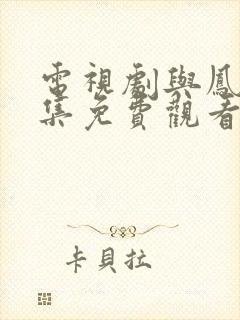 電視劇與鳳
集免費觀看
卡貝拉